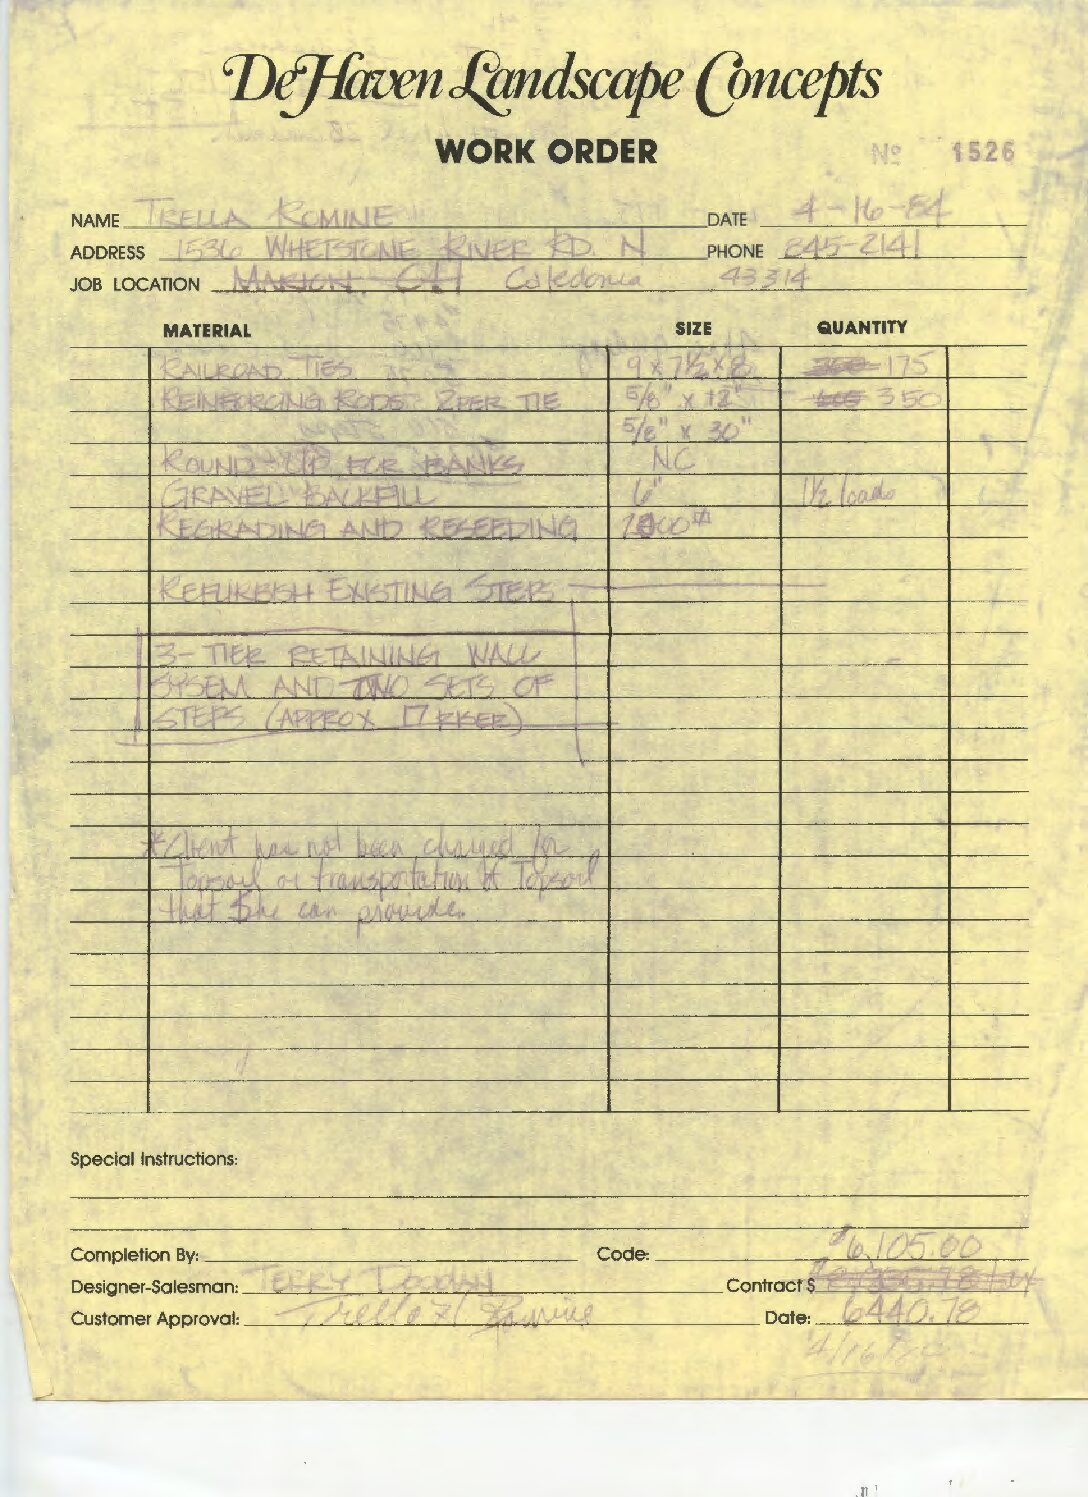 DeHaven Landscape Concepts
WORK ORDER
No 1526
NAME TRELLA ROMINE DATE 4-16-84
ADDRESS 1536 WHETSTONE RIVER RD. N PHONE 845-2141
JOB LOCATION MARION, OH Caledonia 43314
MATERIAL SIZE QUANTITY
RAILROAD TIES 9 x 7½ x 8 175
REINFORCING RODS 2 PER TIE 5/8" x 12" 350
5/8" x 30"
ROUND-UP FOR BANKS NC
GRAVEL BACKFILL 6" 1½ loads
REGRADING AND RESEEDING
REFURBISH EXISTING STEPS
3-TIER RETAINING WALL
SYSEM AND TWO SETS OF
STEPS (APPROX 17 RISER)
*Client has not been charged for
Topsoil or transportation of Topsoil
that She can provide.
Special Instructions:
Completion By: Code: $6,105.00
Designer-Salesman: TERRY Contract $
Customer Approval: Trella H Romine Date: 6440.78
4/16/84